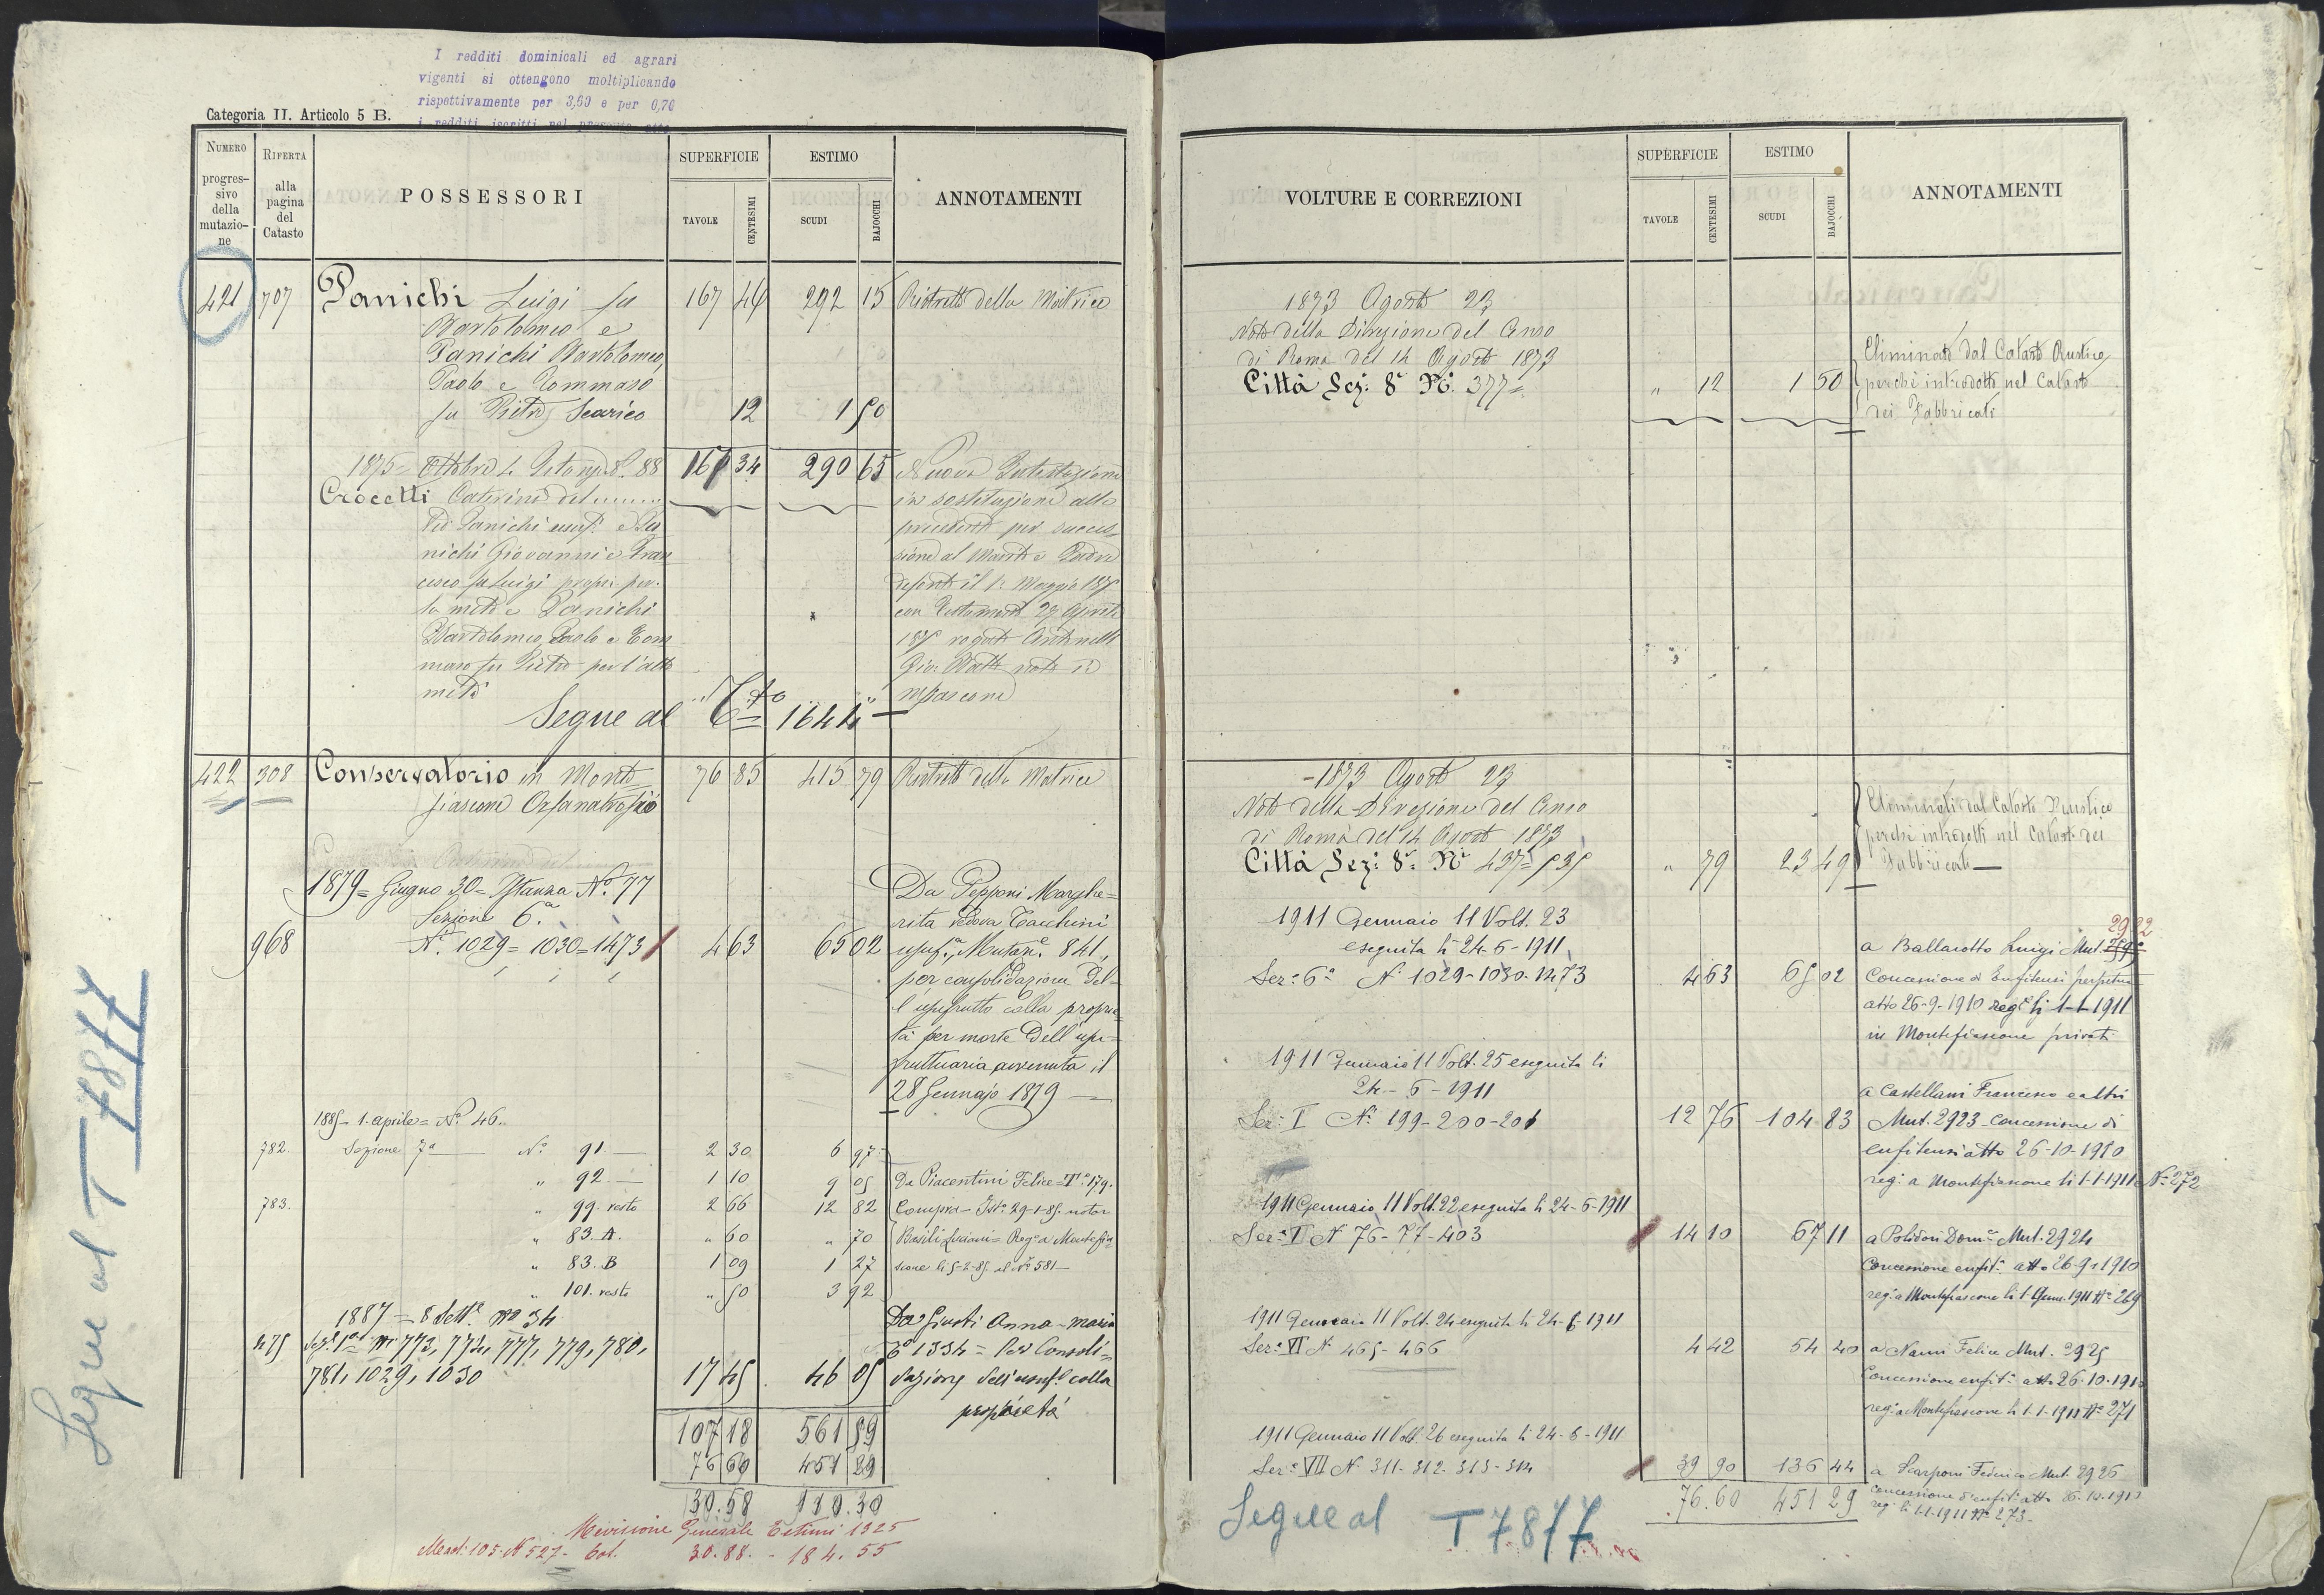 I redditi dominicali ed agrari
vigenti si ottengono moltiplicando
rispettivamente per 3,60 e per 0,70
i redditi iscritti nel presente
Categoria II. Articolo 5 B.
NUMERO progressivo della mutazione
RIFERTA alla pagina del Catasto
POSSESSORI
SUPERFICIE
TAVOLE
CENTESIMI
ESTIMO
SCUDI
BAJOCCHI
ANNOTAMENTI
421 707 Panichi Luigi fu 167 46 292 15 Ristretto della Matrice
Bartolomeo e
Panichi Bartolomeo,
Paolo e Tommaso
fu Pietro Scarico 12 1 50
1875 = Ottobre 4 88 167 34 290 65 Nuova Intestazione
Crocetti Caterina del in sostituzione alla
Ved Panichi usuf. e Pa precedente per succes
nichi Giovanni e Fran sione al Marito e Padre
cesco fu Luigi propri per defonto il 1 Maggio 187
la metà e Panichi con Testamento 27 Aprile
Bartolomeo, Paolo e Tom 187 rogato Antonelli
maso fu Pietro per l'altra Gio: Batta
metà
Segue al T.o 1644
422 308 Conservatorio in Monte 76 85 415 79 Ristretto della Matrice
fiascone Orfanatrofio
1879 = Giugno 30 = Istanza No. 77 Da Pepponi Marghe=
Sezione 6.a rita vedova Tacchini
968 N.i 1029 = 1030 = 1473 4 63 65 02 usuf.a Mutaz.e 841.,
per consolidazione del=
l'usufrutto colla proprie=
tà per morte dell'usu=
fruttuaria avvenuta il
28 Gennajo 1879
1885 - 1. aprile = No. 46.
782. Sezione 7a No. 91. 2 30 6 97
" 92 1 10 9 05 Da Piacentini Felice = T.o 179.
783. " 99. resto 2 66 12 82 Compra - Ist.o 29-1-85. notar
" 83. A. " 60 " 70 Basili Luciani = Reg.o a Montefia
" 83. B 1 09 1 27 scone li 5-2-85. al No 581
" 101. resto " 50 3 92
1887 = 8 Sett.e No 34 Da Giusti Anna-Maria
475 Sez.e 1a Ni 773, 774, 777, 779, 780, T.o 1334 = Per Consoli=
781, 1029, 1030 17 45 46 05 dazione dell'usuf.o colla
proprietà
107 18 561 59
76 60 451 29
30.58 110.30
Revisione Generale Estimi 1925
Mod. 105. N 527 - Cat. 30.88. - 184.55
Segue al T 7877
VOLTURE E CORREZIONI
SUPERFICIE
TAVOLE
CENTESIMI
ESTIMO
SCUDI
BAJOCCHI
ANNOTAMENTI
1873 Agosto 23
Nota della Direzione del Censo
di Roma del 14 Agosto 1873 Eliminato dal Catasto Rustico
Città Sez: 8a No. 377 = " 12 1 50 perchè introdotto nel Catasto
dei Fabbricati
1873 Agosto 23
Nota della Direzione del Censo Eliminati dal Catasto Rustico
di Roma del 14 Agosto 1873 perchè introdotti nel Catasto dei
Città Sez: 8a: Ni 437 = 535 " 79 23 49 Fabbricati
1911 Gennaio 11 Volt. 23 2922
eseguita li 24-6-1911 a Ballarotto Luigi Mut.
Sez: 6a N. 1029-1030-1473 4 63 65 02 Concessione di Enfiteusi perpetua
atto 26-9-1910 reg.o li 1-1-1911
in Montefiascone privati
1911 Gennaio 11 Volt. 25 eseguita li
24-6-1911 a Castellani Francesco e altri
Sez: I No. 199-200-201 12 76 104 83 Mut. 2923 Concessione di
enfiteusi atto 26-10-1910
reg: a Montefiascone li 1-1-1911 No. 272
1911 Gennaio 11 Volt. 22 eseguita li 24-6-1911
Sez: I N 76-77-403 14 10 67 11 a Polidori Dom.co Mut. 2924
Concessione enfit. atto 26-9-1910
reg. a Montefiascone li 1 Genn. 1911 No 269
1911 Gennaio 11 Volt. 24 eseguita li 24-6-1911
Sez: VI N 465-466 4 42 54 40 a Nanni Felice Mut. 2925
Concessione enfit. atto 26-10-1910
reg: a Montefiascone li 1-1-1911 No 271
1911 Gennaio 11 Volt. 26 eseguita li 24-6-1911
Sez: VII N 311-312-313-314 39 90 136 44 a Scarponi Federico Mut. 2926
76.60 451 29 Concessione d'enfit. atto 26-10-1910
reg. li 1-1-1911 No 273-
Segue al T 7877